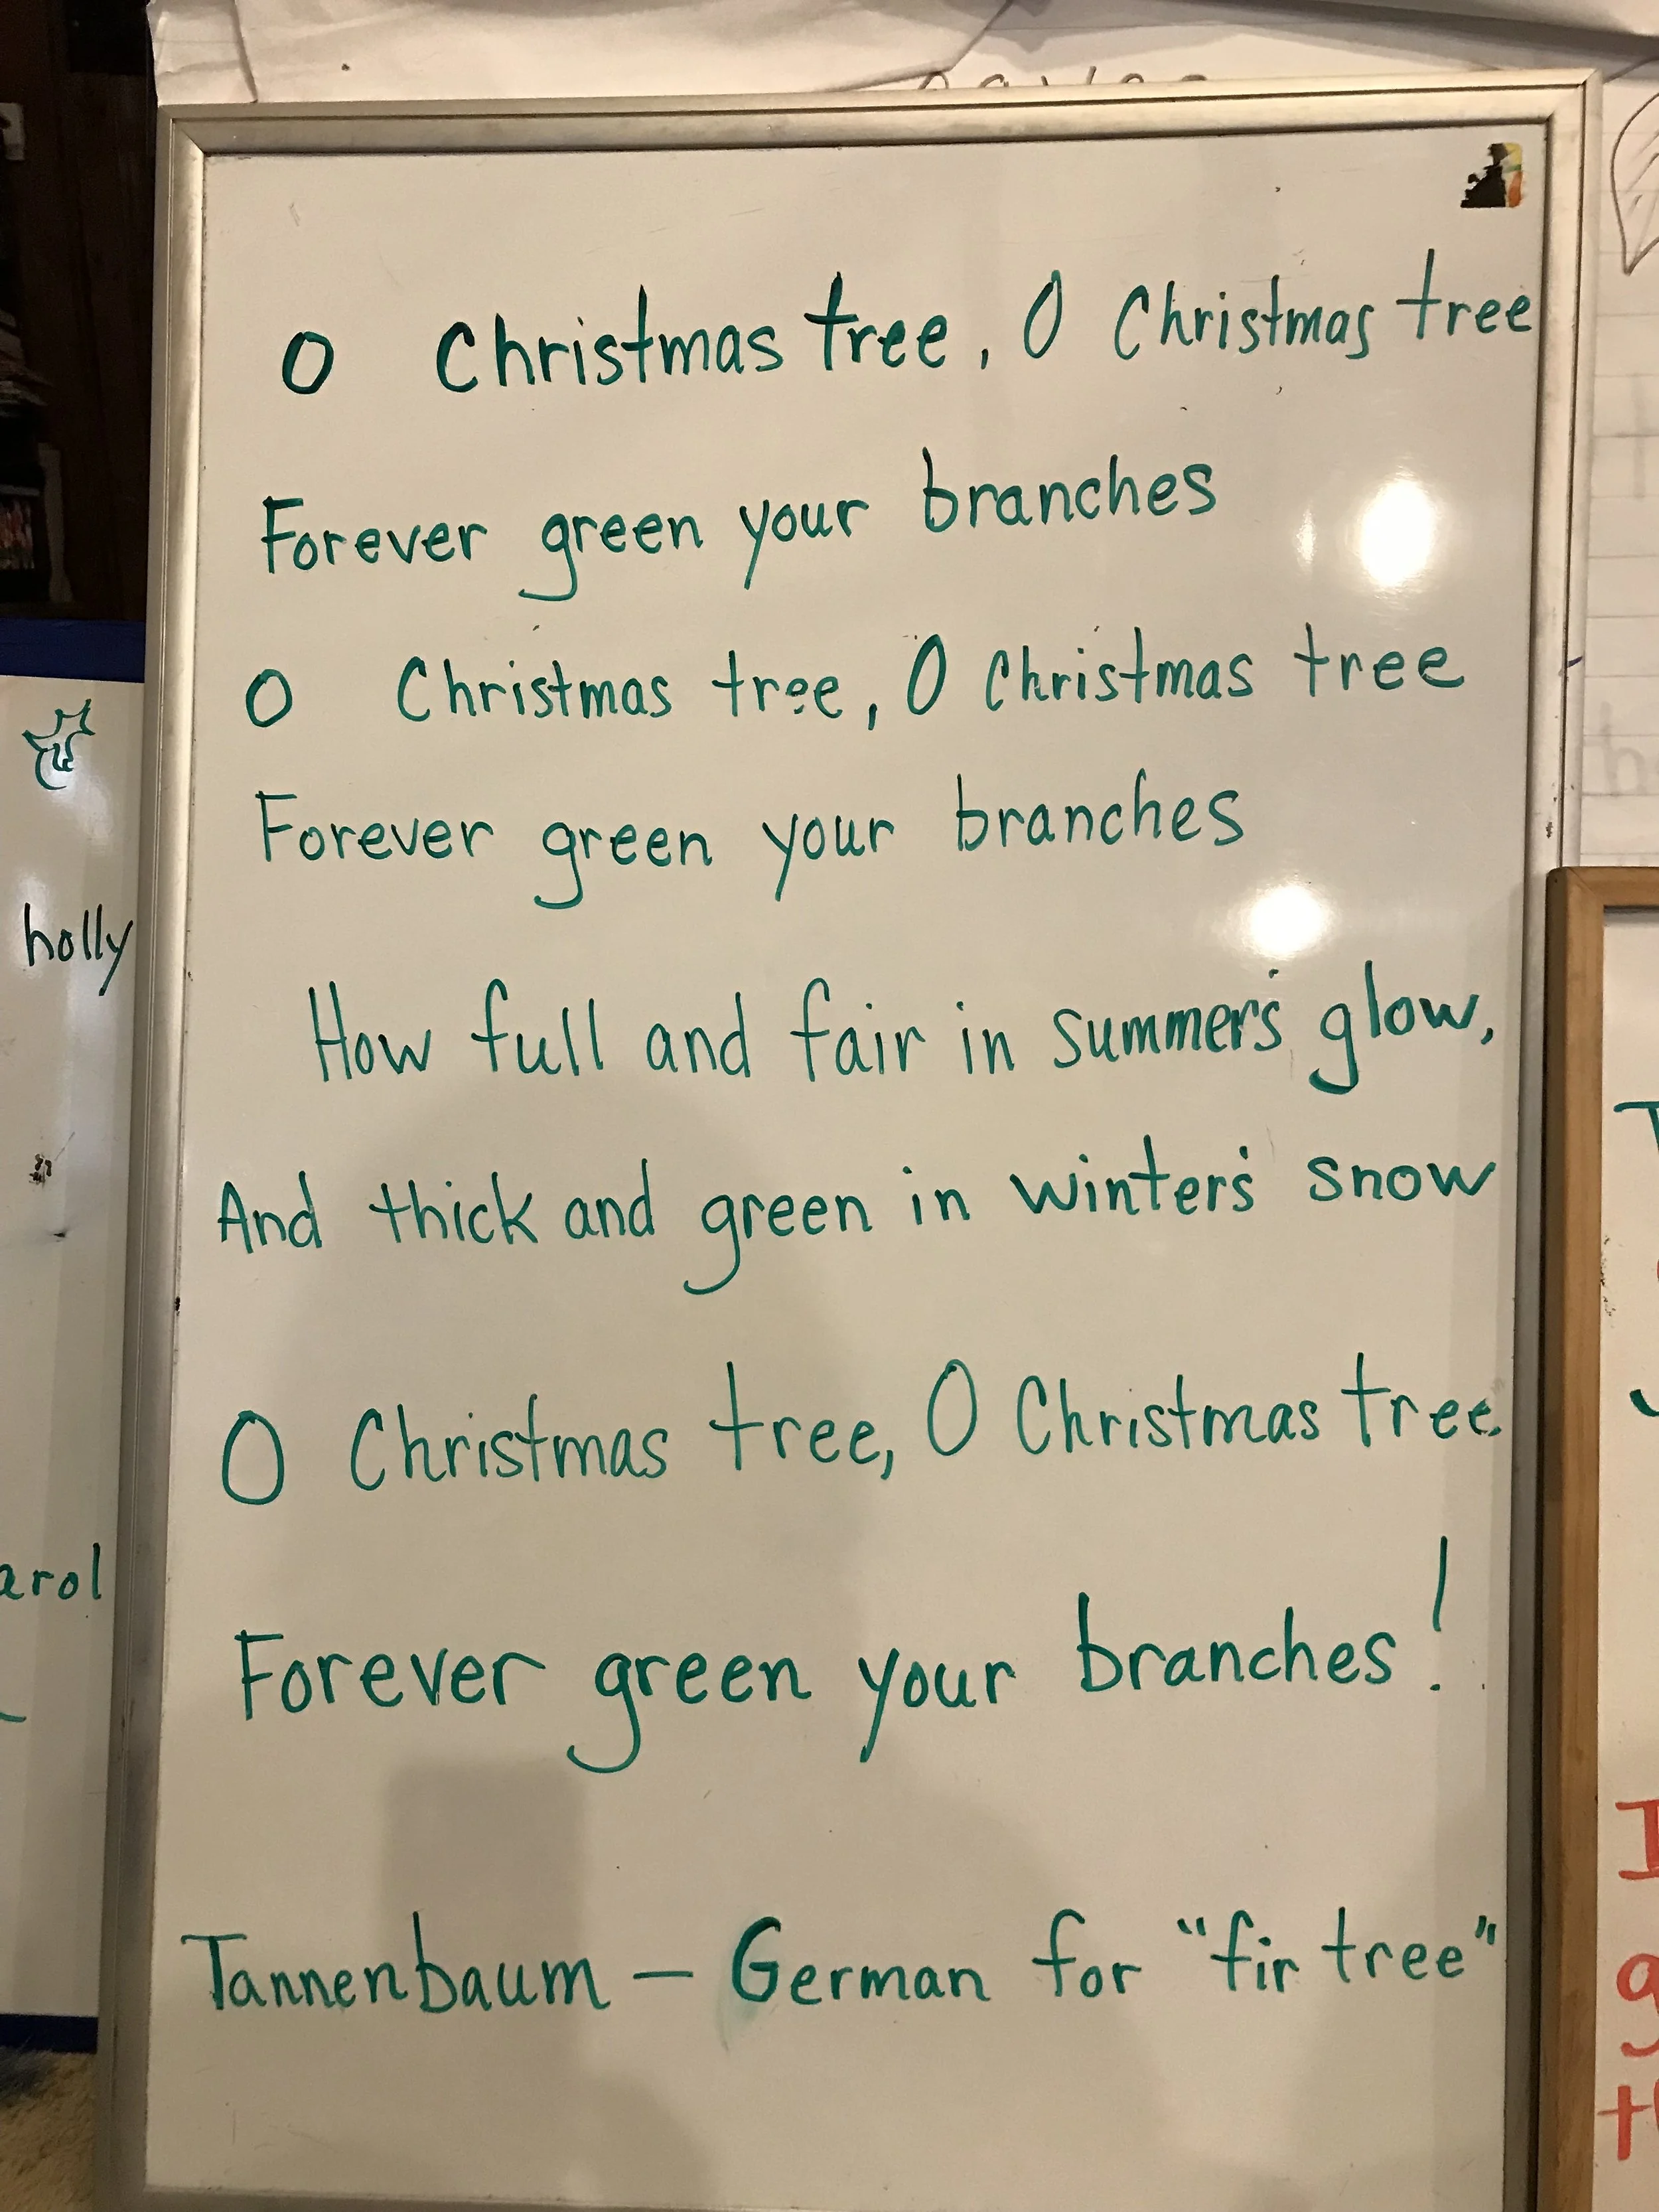 O Christmas tree, O Christmas tree
Forever green your branches
O Christmas tree, O Christmas tree
Forever green your branches
How full and fair in summer's glow,
And thick and green in winter's snow
O Christmas tree, O Christmas tree
Forever green your branches!
Tannenbaum — German for "fir tree"
holly
arol